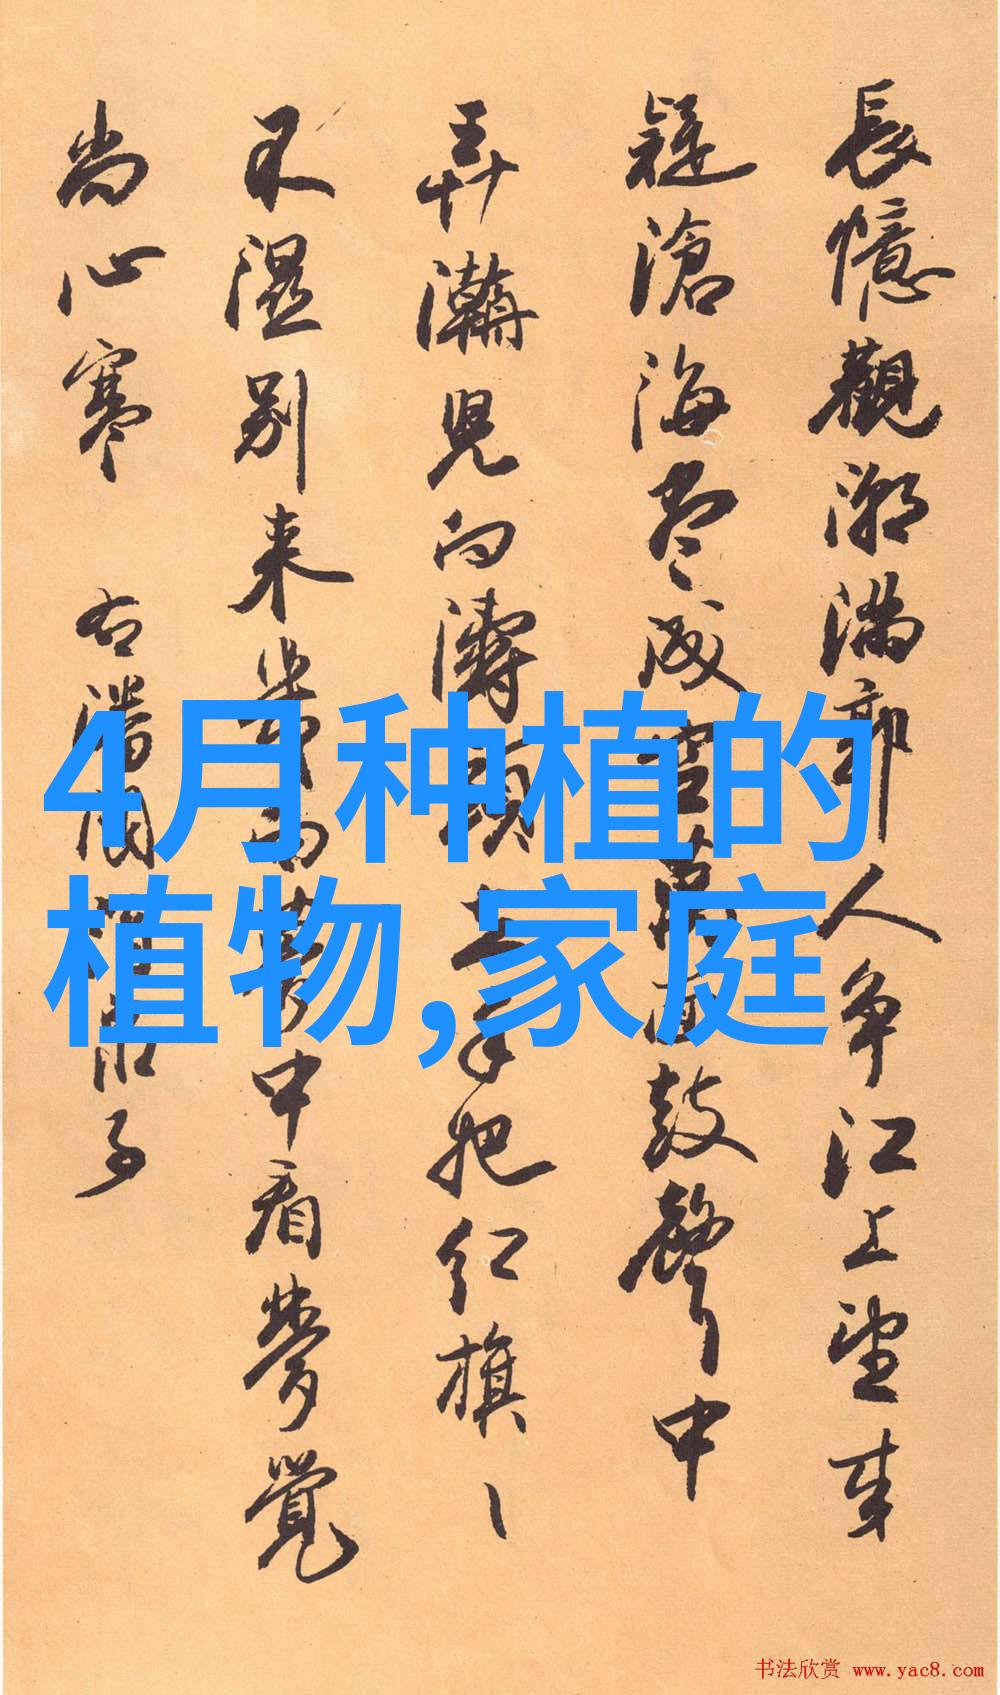 長憶觀潮滿郭人爭江上望来
疑滄海盡成空萬面鼓聲中
弄潮兒向濤頭立手把红旗丶
不濕别来幾向夢中看夢覺
尚心寒 右潘閬酒泉子
4月种植的
植物,家庭
书法欣赏 www.yac8.com